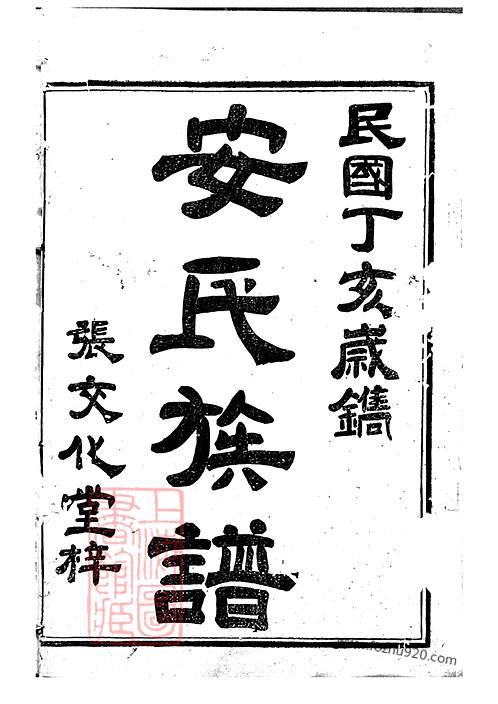 民國丁亥歲鐫
安氏族譜
張文化堂梓